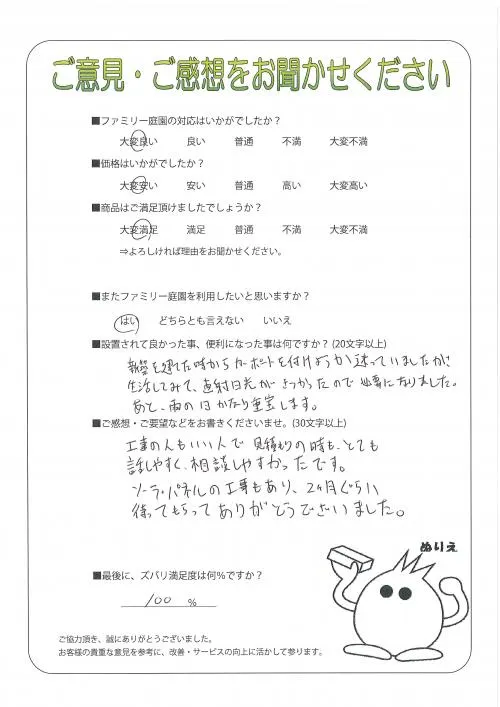 ご意見・ご感想をお聞かせください
■ファミリー庭園の対応はいかがでしたか？
大変良い 良い 普通 不満 大変不満
■価格はいかがでしたか？
大変安い 安い 普通 高い 大変高い
■商品はご満足頂けましたでしょうか？
大変満足 満足 普通 不満 大変不満
⇒よろしければ理由をお聞かせください。
■またファミリー庭園を利用したいと思いますか？
はい どちらとも言えない いいえ
■設置されて良かった事、便利になった事は何ですか？(20文字以上)
新築を建てた時からカーポートを付けようか迷っていましたが、
生活してみて、直射日光がきつかったので必要になりました。
あと、雨の日かなり重宝します。
■ご感想・ご要望などをお書きくださいませ。(30文字以上)
工事の人もいい人で見積もりの時も、とても
話しやすく、相談しやすかったです。
ソーラーパネルの工事もあり、2ヶ月ぐらい
待ってもらってありがとうございました。
ぬりえ
■最後に、ズバリ満足度は何％ですか？
100 %
ご協力頂き、誠にありがとうございました。
お客様の貴重な意見を参考に、改善・サービスの向上に活かして参ります。